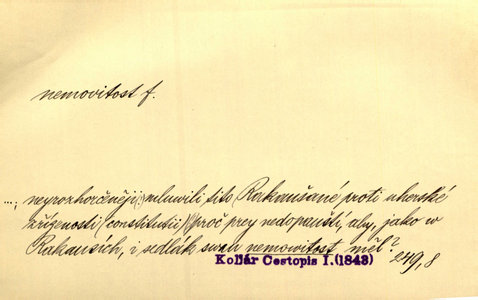 nemovitost f.
...; neyrozhorčeněji mluwili tito Rakaušané proti uherské
zřízenosti (constitucii) (proč prey nedopauští, aby, jako w
Rakausích, i sedlák swau nemowitost měl?
Kollár Cestopis I. (1843) 249,8